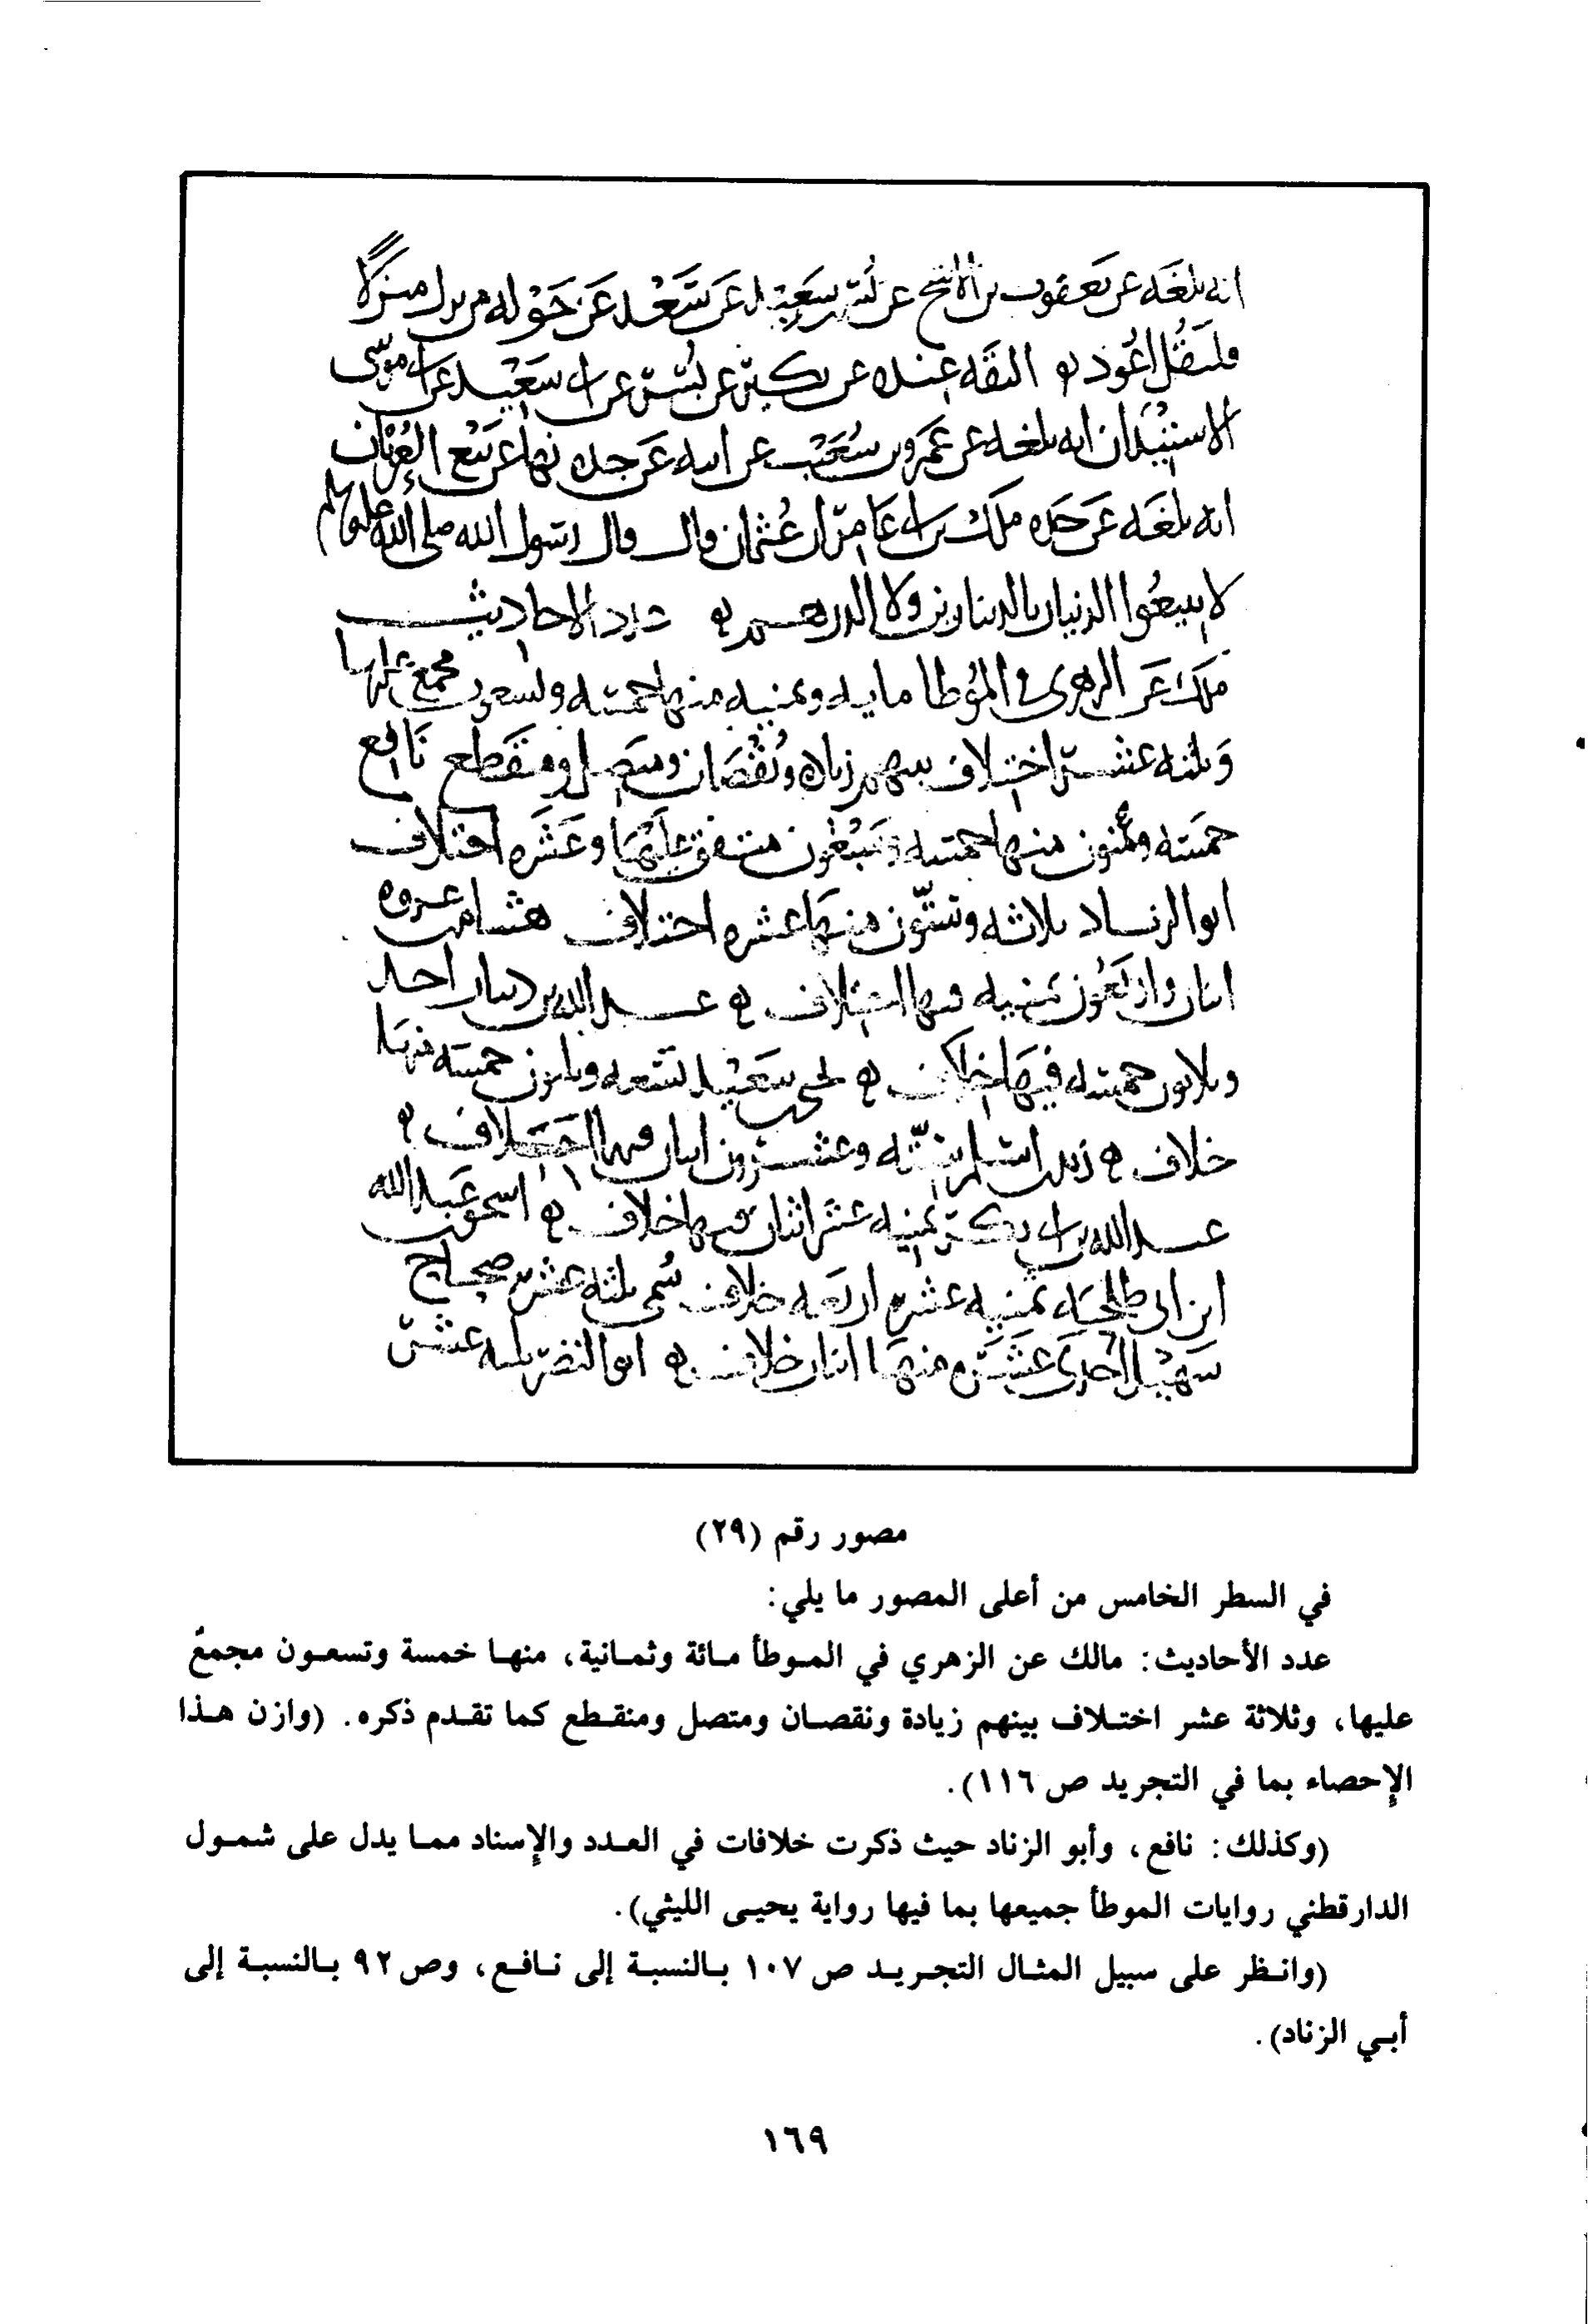 انه بلغه عن يعقوب بن الاشج عن بسر بن سعيد عن سعد عن خوله من نزل منزلا
فليقل اعوذ ه الثقه عنده عن بكير عن بسر عن ابي سعيد عن ابي موسى
الاستيذان انه بلغه عن عمرو بن شعيب عن ابيه عن جده نها عن بيع العربان
انه بلغه عن جده ملك بن ابي عامر ان عثمان قال قال رسول الله صلى الله عليه وسلم
لا تبيعوا الدينار بالدينارين ولا الدرهم ه عدد الاحاديث
ملك عن الزهري في الموطا مايه وثمنيه منها خمسه وتسعون مجمع عليها
وثلثه عشر اختلاف بينهم زياده ونقصان ومتصل ومنقطع نافع
خمسه وثمنون منها خمسه وسبعون متفق عليها وعشره اختلاف
ابو الزناد ثلاثه وستون منها عشره اختلاف هشام بن عروه
اثنان واربعون ثمنيه فيها اختلاف ه عبد الله بن دينار احد
وثلاثون خمسه فيها اختلاف ه يحيى بن سعيد تسعه وثلثون خمسه منها
خلاف ه زيد بن اسلم ثلثه وعشرون اثنان فيها اختلاف ه
عبد الله بن ابي بكر ثمنيه عشر اثنان فيها خلاف ه اسحق بن عبد الله
ابن ابي طلحه ثمنيه عشره اربعه خلاف سمي ثلثه عشر صحاح
سهيل احدى عشر منها اثنان خلاف ه ابو النضر ثلثه عشر
مصور رقم (٢٩)
في السطر الخامس من أعلى المصور ما يلي:
عدد الأحاديث: مالك عن الزهري في الموطأ مائة وثمانية، منها خمسة وتسعون مجمعٌ
عليها، وثلاثة عشر اختلاف بينهم زيادة ونقصان ومتصل ومنقطع كما تقدم ذكره. (وازن هذا
الإحصاء بما في التجريد ص ١١٦).
(وكذلك: نافع، وأبو الزناد حيث ذكرت خلافات في العدد والإسناد مما يدل على شمول
الدارقطني روايات الموطأ جميعها بما فيها رواية يحيى الليثي).
(وانظر على سبيل المثال التجريد ص ١٠٧ بالنسبة إلى نافع، وص ٩٢ بالنسبة إلى
أبي الزناد).
١٦٩